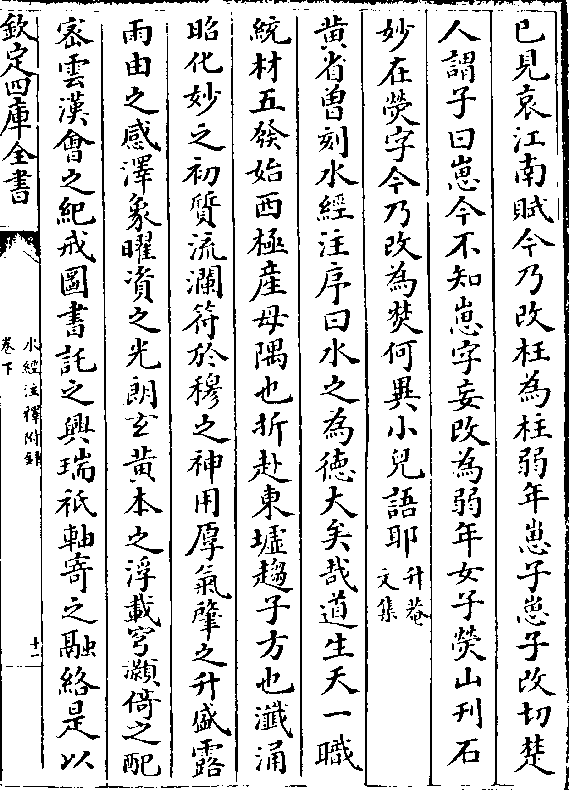 已見哀江南賦今乃改枉為柱弱年崽子崽子改切楚
人謂子曰崽今不知崽字妄改為弱年女子熒山刊石
妙在熒字今乃改為焚何異小兒語耶升菴文集
黄省曽刻水經注序曰水之為德大矣哉道生天一職
統材五發始西極産母隅也折赴東墟趨子方也瀸涌
昭化妙之初質流瀾符於穆之神用厚氣肇之升盛露
雨由之感澤象曜資之光朗玄黄本之浮載穹灝倚之配
宻雲漢會之紀戒圖書託之興瑞祇軸寄之融絡是以
欽定四庫全書
水經注釋附錄
卷下
十一